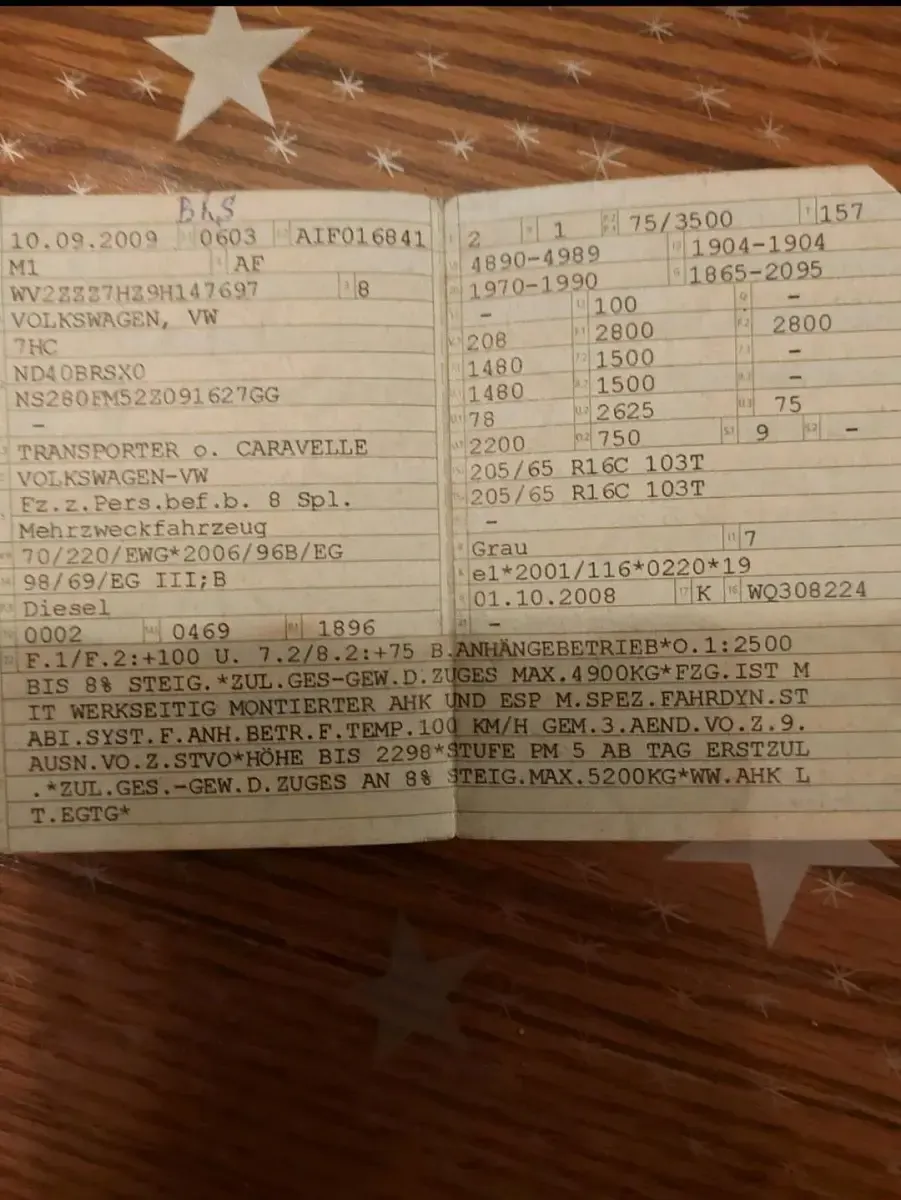 BKS
10.09.2009 0603 AIF016841
M1 AF
WV2ZZZ7HZ9H147697 8
VOLKSWAGEN, VW
7HC
ND40BRSX0
NS280FM52Z091627GG
–
TRANSPORTER o. CARAVELLE
VOLKSWAGEN-VW
Fz.z.Pers.bef.b. 8 Spl.
Mehrzweckfahrzeug
70/220/EWG*2006/96B/EG
98/69/EG III;B
Diesel
0002 0469 1896
2 1 75/3500 157
4890-4989 1904-1904
1970-1990 1865-2095
– 100 –
208 2800 2800
1480 1500 –
1480 1500 –
78 2625 75
2200 750 9 –
205/65 R16C 103T
205/65 R16C 103T
–
Grau 7
e1*2001/116*0220*19
01.10.2008 K WQ308224
–
F.1/F.2:+100 U. 7.2/8.2:+75 B.ANHÄNGEBETRIEB*O.1:2500
BIS 8% STEIG.*ZUL.GES-GEW.D.ZUGES MAX.4900KG*FZG.IST M
IT WERKSEITIG MONTIERTER AHK UND ESP M.SPEZ.FAHRDYN.ST
ABI.SYST.F.ANH.BETR.F.TEMP.100 KM/H GEM.3.AEND.VO.Z.9.
AUSN.VO.Z.STVO*HÖHE BIS 2298*STUFE PM 5 AB TAG ERSTZUL
.*ZUL.GES.-GEW.D.ZUGES AN 8% STEIG.MAX.5200KG*WW.AHK L
T.EGTG*